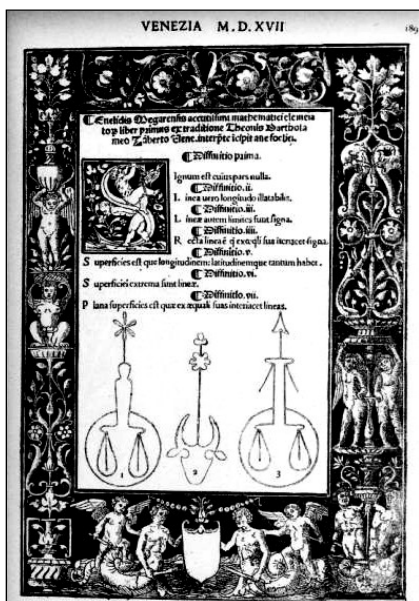 VENEZIA M.D.XVII
189
¶Euclidis Megarensis accutissimi mathematici elemẽta
toꝝ liber primus ex traditione Theonis Barthola
meo Zãberto Uene. interp̃te
¶Diffinitio prima.
S
Ignum est cuius pars nulla.
¶Diffinitio. ii.
L inea uero longitudo illatabilis.
¶Diffinitio. iii.
L ineæ autem limites sunt signa.
¶Diffinitio. iiii.
R ecta linea ẽ sua signa.
¶Diffinitio. v.
S uperficies est que longitudinem: latitudinemque tantum habet.
¶Diffinitio. vi.
S uperficiei extrema sunt lineæ.
¶Diffinitio. vii.
P lana superficies est quæ ex æquali suas interiacet lineas.
1
2
3